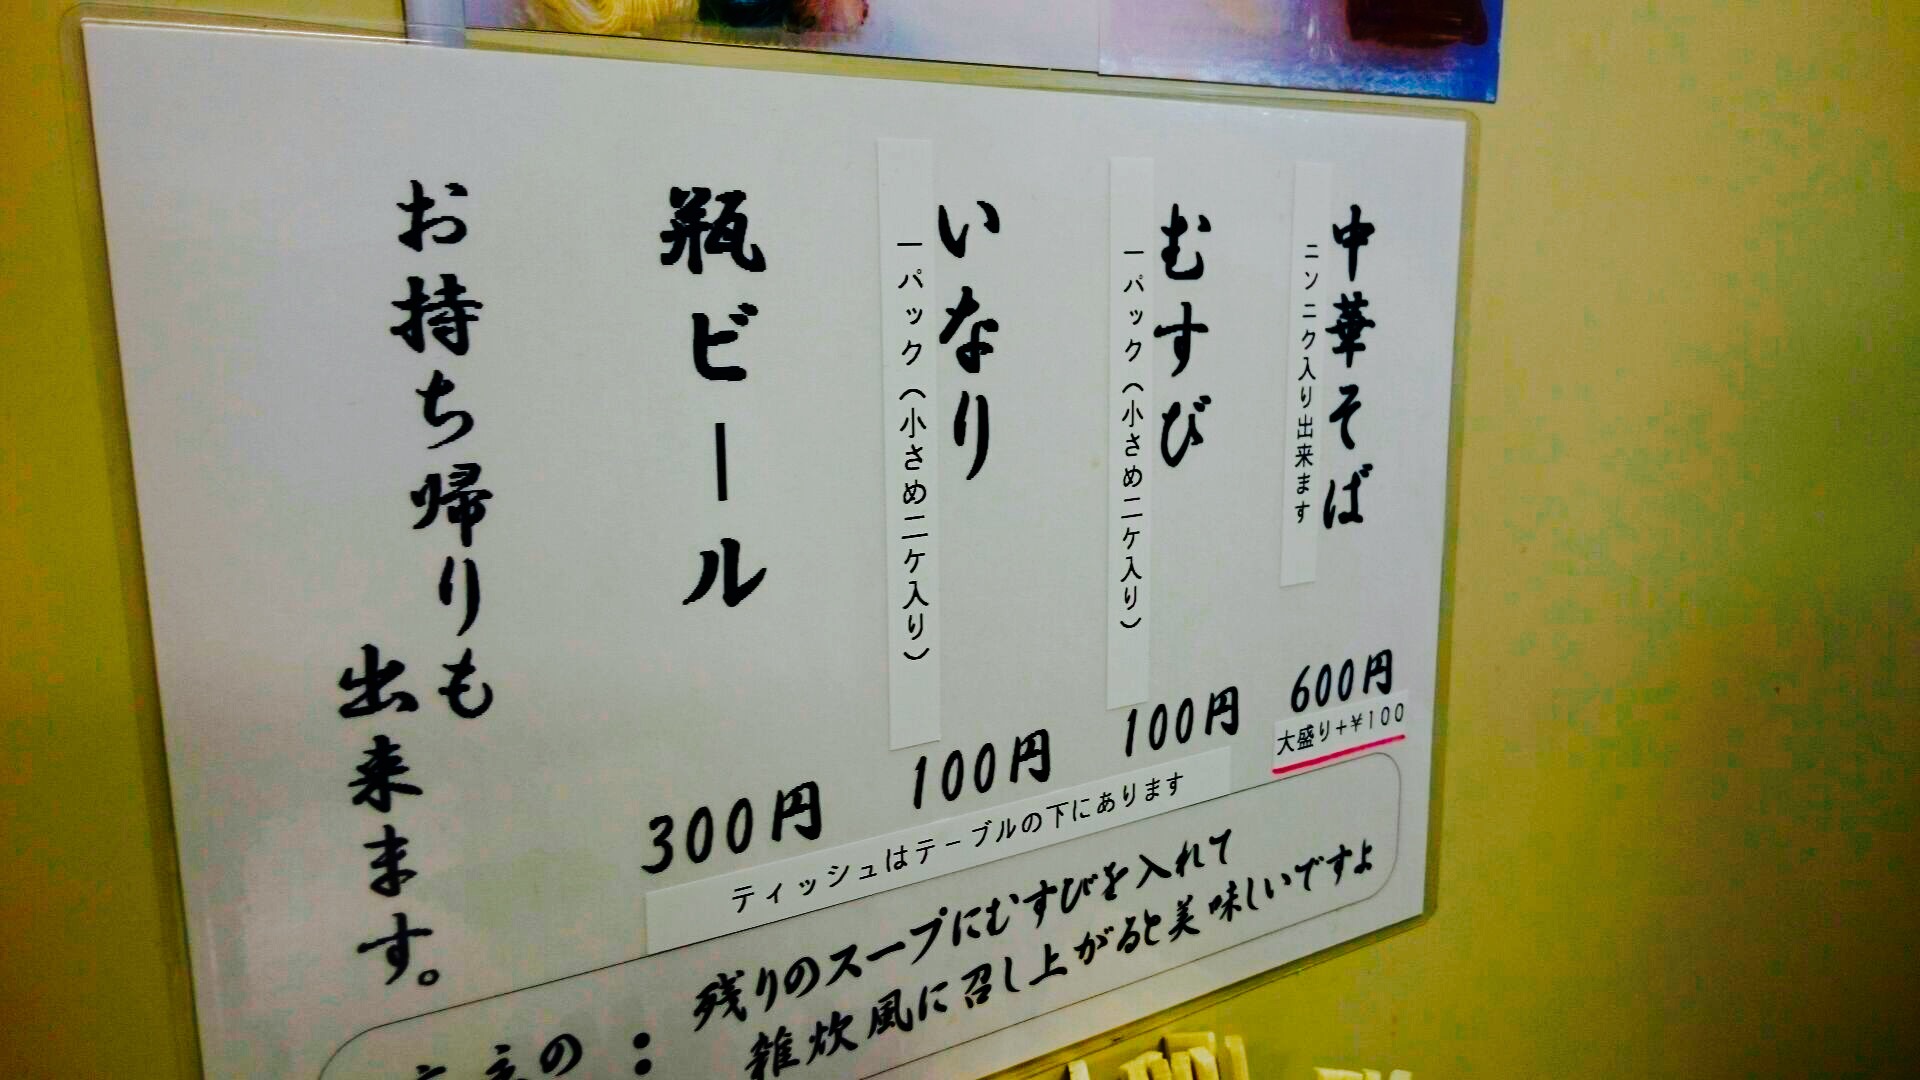 中華そば
ニンニク入り出来ます
600円
大盛り+¥100
むすび
一パック(小さめ二ケ入り)
100円
いなり
一パック(小さめ二ケ入り)
100円
瓶ビール
300円
お持ち帰りも
出来ます。
ティッシュはテーブルの下にあります
残りのスープにむすびを入れて
雑炊風に召し上がると美味しいですよ